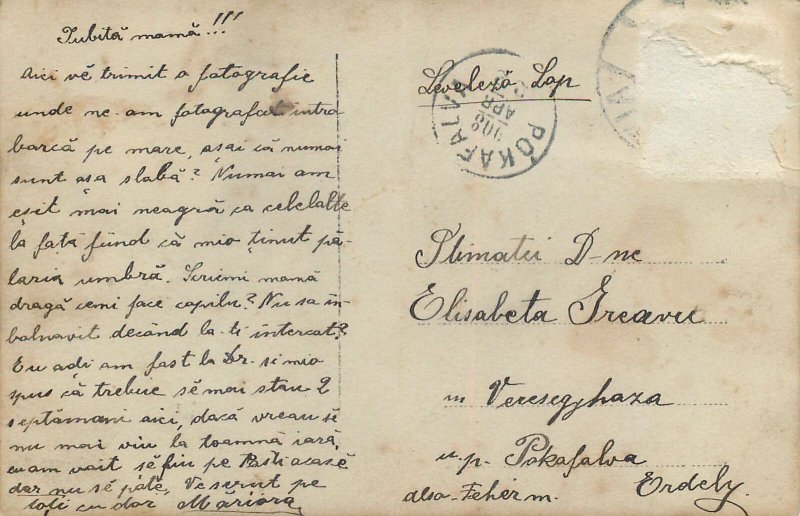 Iubită mamă!!!
Aici vĕ trimit o fotografie
unde ne-am fotografat intro
barcă pe mare, așai că numai
sunt așa slabă? Numai am
eșit mai neagră ca celelalte
la față fiind că mio ținut pă-
laria umbră. Scriemi mamă
dragă cemi face capilu? Nu sa in-
bolnavit decând la-ti intercat?
Eu adi am fost la Dr. si mio
spus că trebue sĕ mai stau 2
septămani aici, dacă vreau sĕ
nu mai viu la toamnă iară,
eu am voit sĕ fiu pe Pasti acasĕ
dar nu sĕ pote, Ve serut pe
toti cu dor Măriora
Levelező Lap
PÓKAFALVA
908
APR
Stimatei D-ne
Elisabeta Greavu
in Vereseghaza
u.p. Pokafalva
also-Fehér m. Erdely.